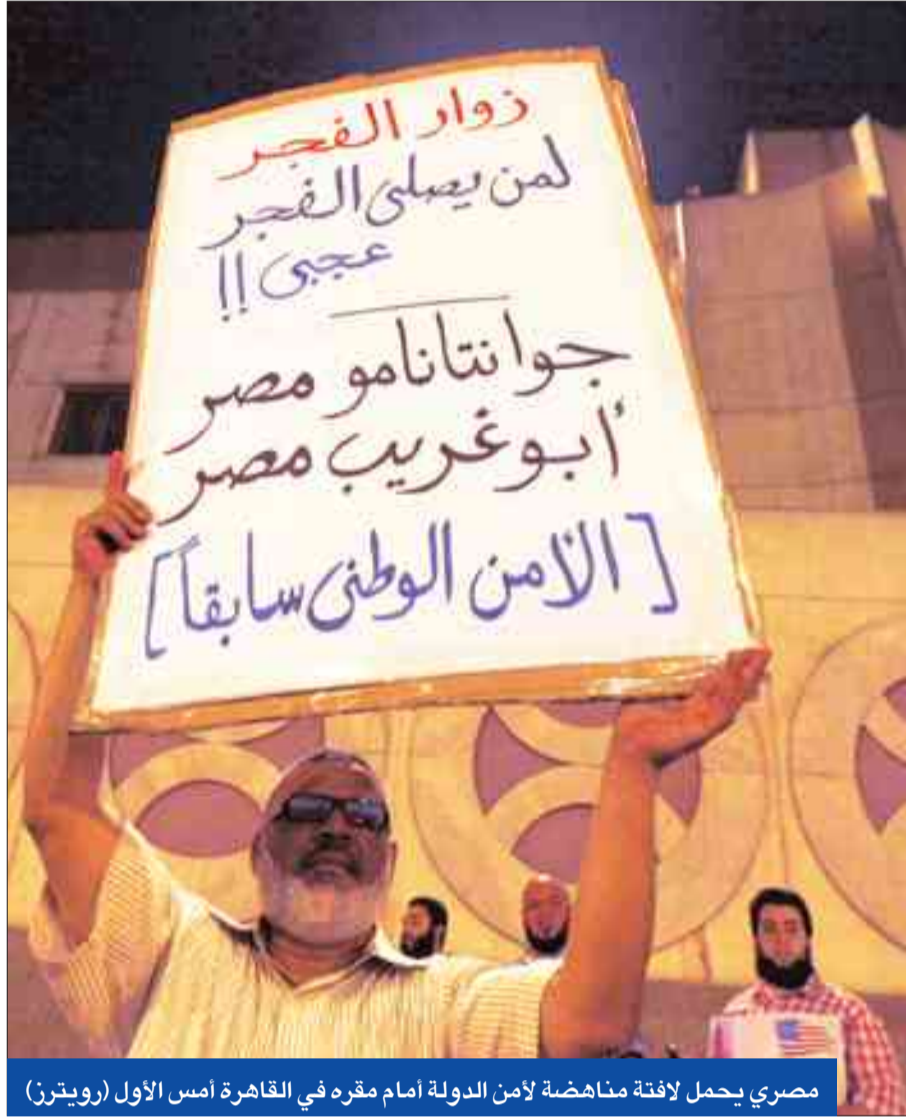 زوار الفجر
لمن يصلى الفجر
عجبى !!
جوانتانامو مصر
أبو غريب مصر
[الأمن الوطنى سابقاً]
مصري يحمل لافتة مناهضة لأمن الدولة أمام مقره في القاهرة أمس الأول (رويترز)